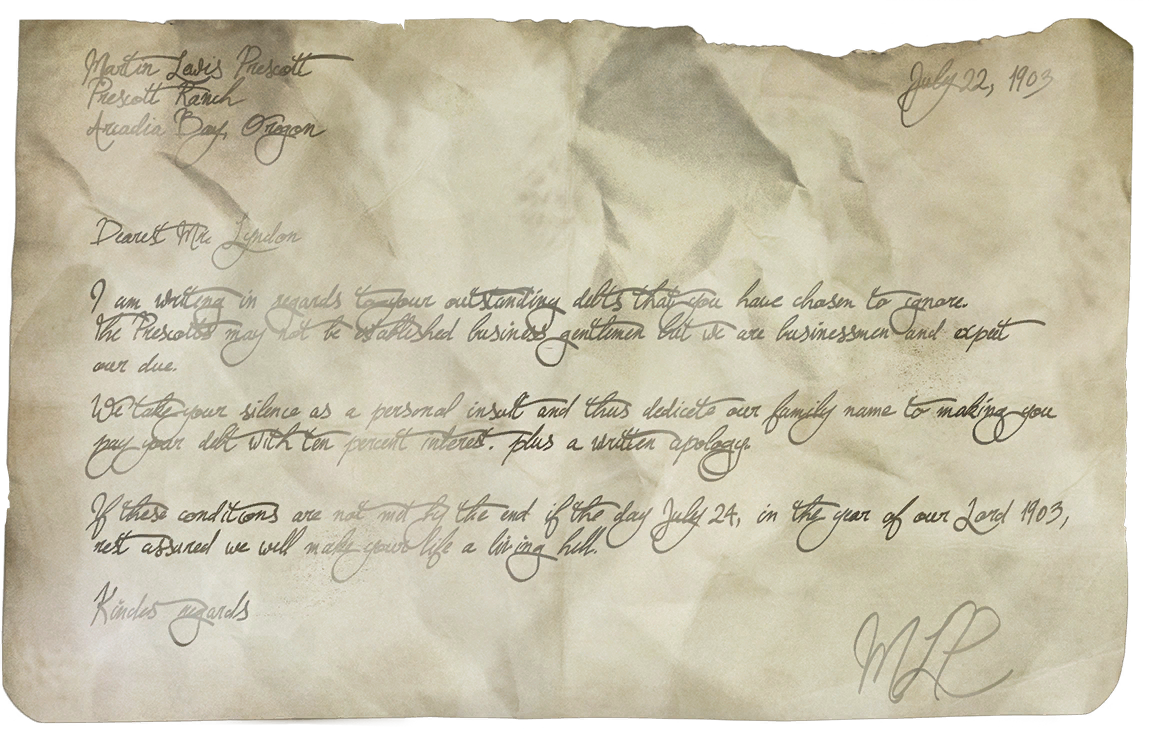 Martin Lewis Prescott
July 22, 1903
Prescott Ranch
Arcadia Bay, Oregon
Dearest Mr. Lyndon
I am writing in regards to your outstanding debts that you have chosen to ignore.
The Prescotts may not be established business gentlemen but we are businessmen and expect
our due.
We take your silence as a personal insult and thus dedicate our family name to making you
pay your debt with ten percent interest. plus a written apology.
If these conditions are not met by the end if the day July 24, in the year of our Lord 1903,
rest assured we will make your life a living hell.
Kindes regards
MLP